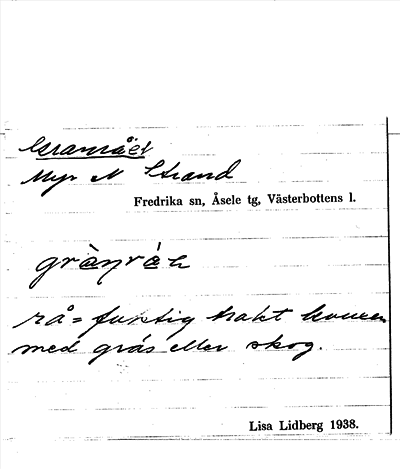 Granråët
Myr N Strand
Fredrika sn, Åsele tg, Västerbottens l.
rå = fuktig trakt
med gräs eller skog.
Lisa Lidberg 1938.